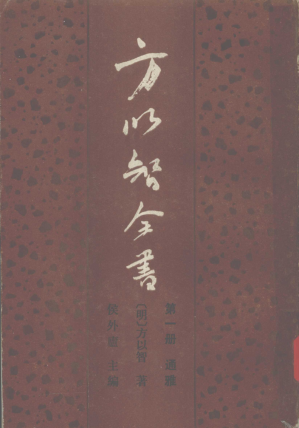 方以智全書
第一册 通雅
〔明〕方以智 著
侯外廬 主編